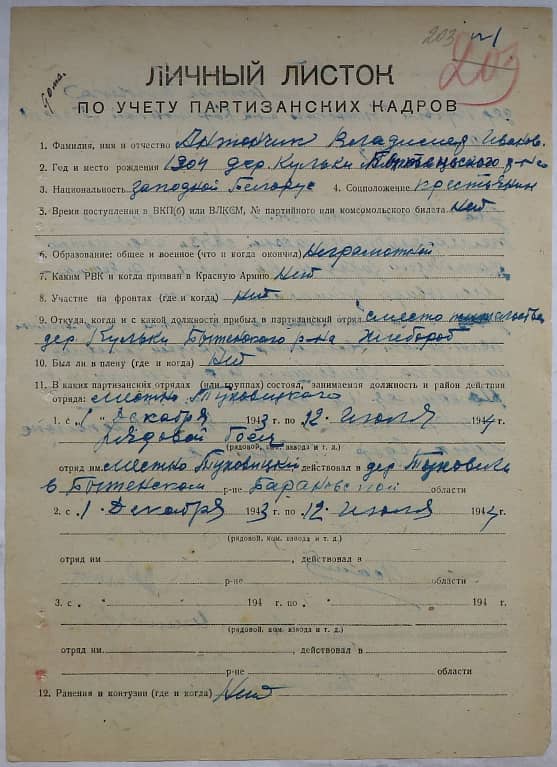 203
203
дома.
ЛИЧНЫЙ ЛИСТОК
ПО УЧЕТУ ПАРТИЗАНСКИХ КАДРОВ
1. Фамилия, имя и отчество Антончик Владислав Иванов.
2. Год и место рождения 1904 дер. Кульки Бытеньского р-на
3. Национальность западной Белорус 4. Соцположение крестьянин
5. Время поступления в ВКП(б) или ВЛКСМ, № партийного или комсомольского билета Нет
6. Образование: общее и военное (что и когда окончил) Неграмотной
7. Каким РВК и когда призван в Красную Армию Нет
8. Участие на фронтах (где и когда) Нет
9. Откуда, когда и с какой должности прибыл в партизанский отряд с место жительства
дер Кульки Бытенского р-на Хлебороб
10. Был ли в плену (где и когда) Нет
11. В каких партизанских отрядах (или группах) состоял, занимаемая должность и район действия
отряда: местно Туховицкого
1. с „1" Декабря 1943 г. по „12" Июля 1944 г.
рядовой боец
(рядовой, ком. взвода и т. д.)
отряд им. местно Туховицкий действовал в дер Туховичи
в Бытенском р-не Барановской области
2. с 1 Декабря 1943 г. по 12 Июля 1944 г.
(рядовой, ком. взвода и т. д.)
отряд им. , действовал в
р-не области
3. с „ " 194 г. по „ " 194 г.
(рядовой, ком. взвода и т. д.)
отряд им. , действовал в
р-не области
12. Ранения и контузии (где и когда) Нет